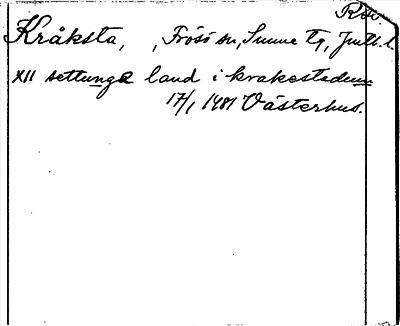 Kråksta, , Frösö sn, Sunne tg, Jmtl. l.
XII settunga land i krakestadum
17/1 1481 Västerhus.